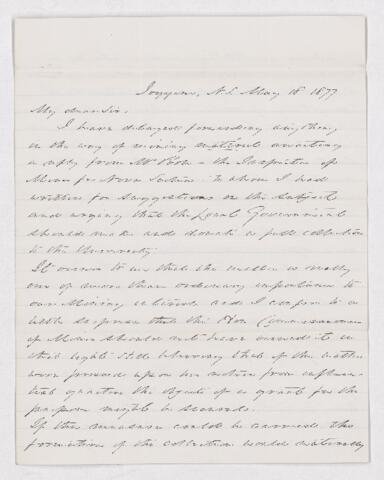 Joggins, N.S. May 18 1877
My dear Sir,
I have delayed forwarding anything
in the way of mining material awaiting
a reply from Mr Poole - the Inspector of
Mines for Nova Scotia - to whom I had
written for suggestions on the subject
and urging that the Local Government
should make and donate a full collection
to the University.
It occurs to me that the matter is really
one of more than ordinary importance to
our Mining interests and I confess to a
little surprise that the Hon Commissioner
of Mines should not have viewed it in
that light. Still believing that if the matter
were pressed upon his notice from influen-
tial quarters the object of a grant for the
purpose might be secured.
If this measure could be carried the
formation of the collection would naturally